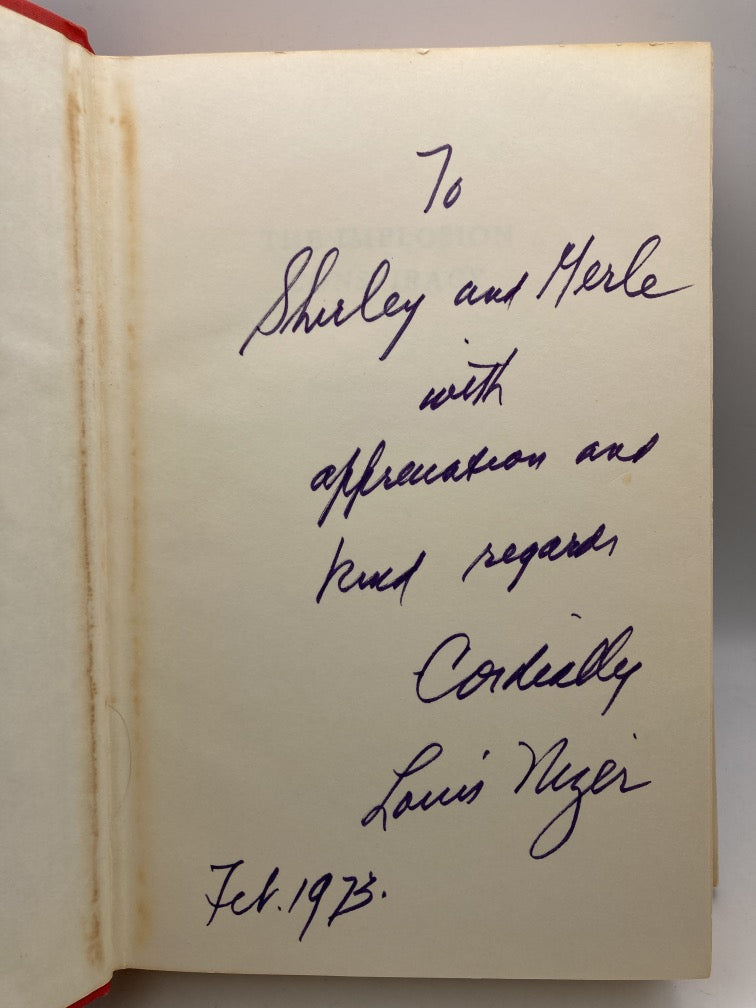 To
THE IMPLOSION
CONSPIRACY
Shirley and Merle
with
appreciation and
kind regards
Cordially
Louis Nizer
Feb. 1973.